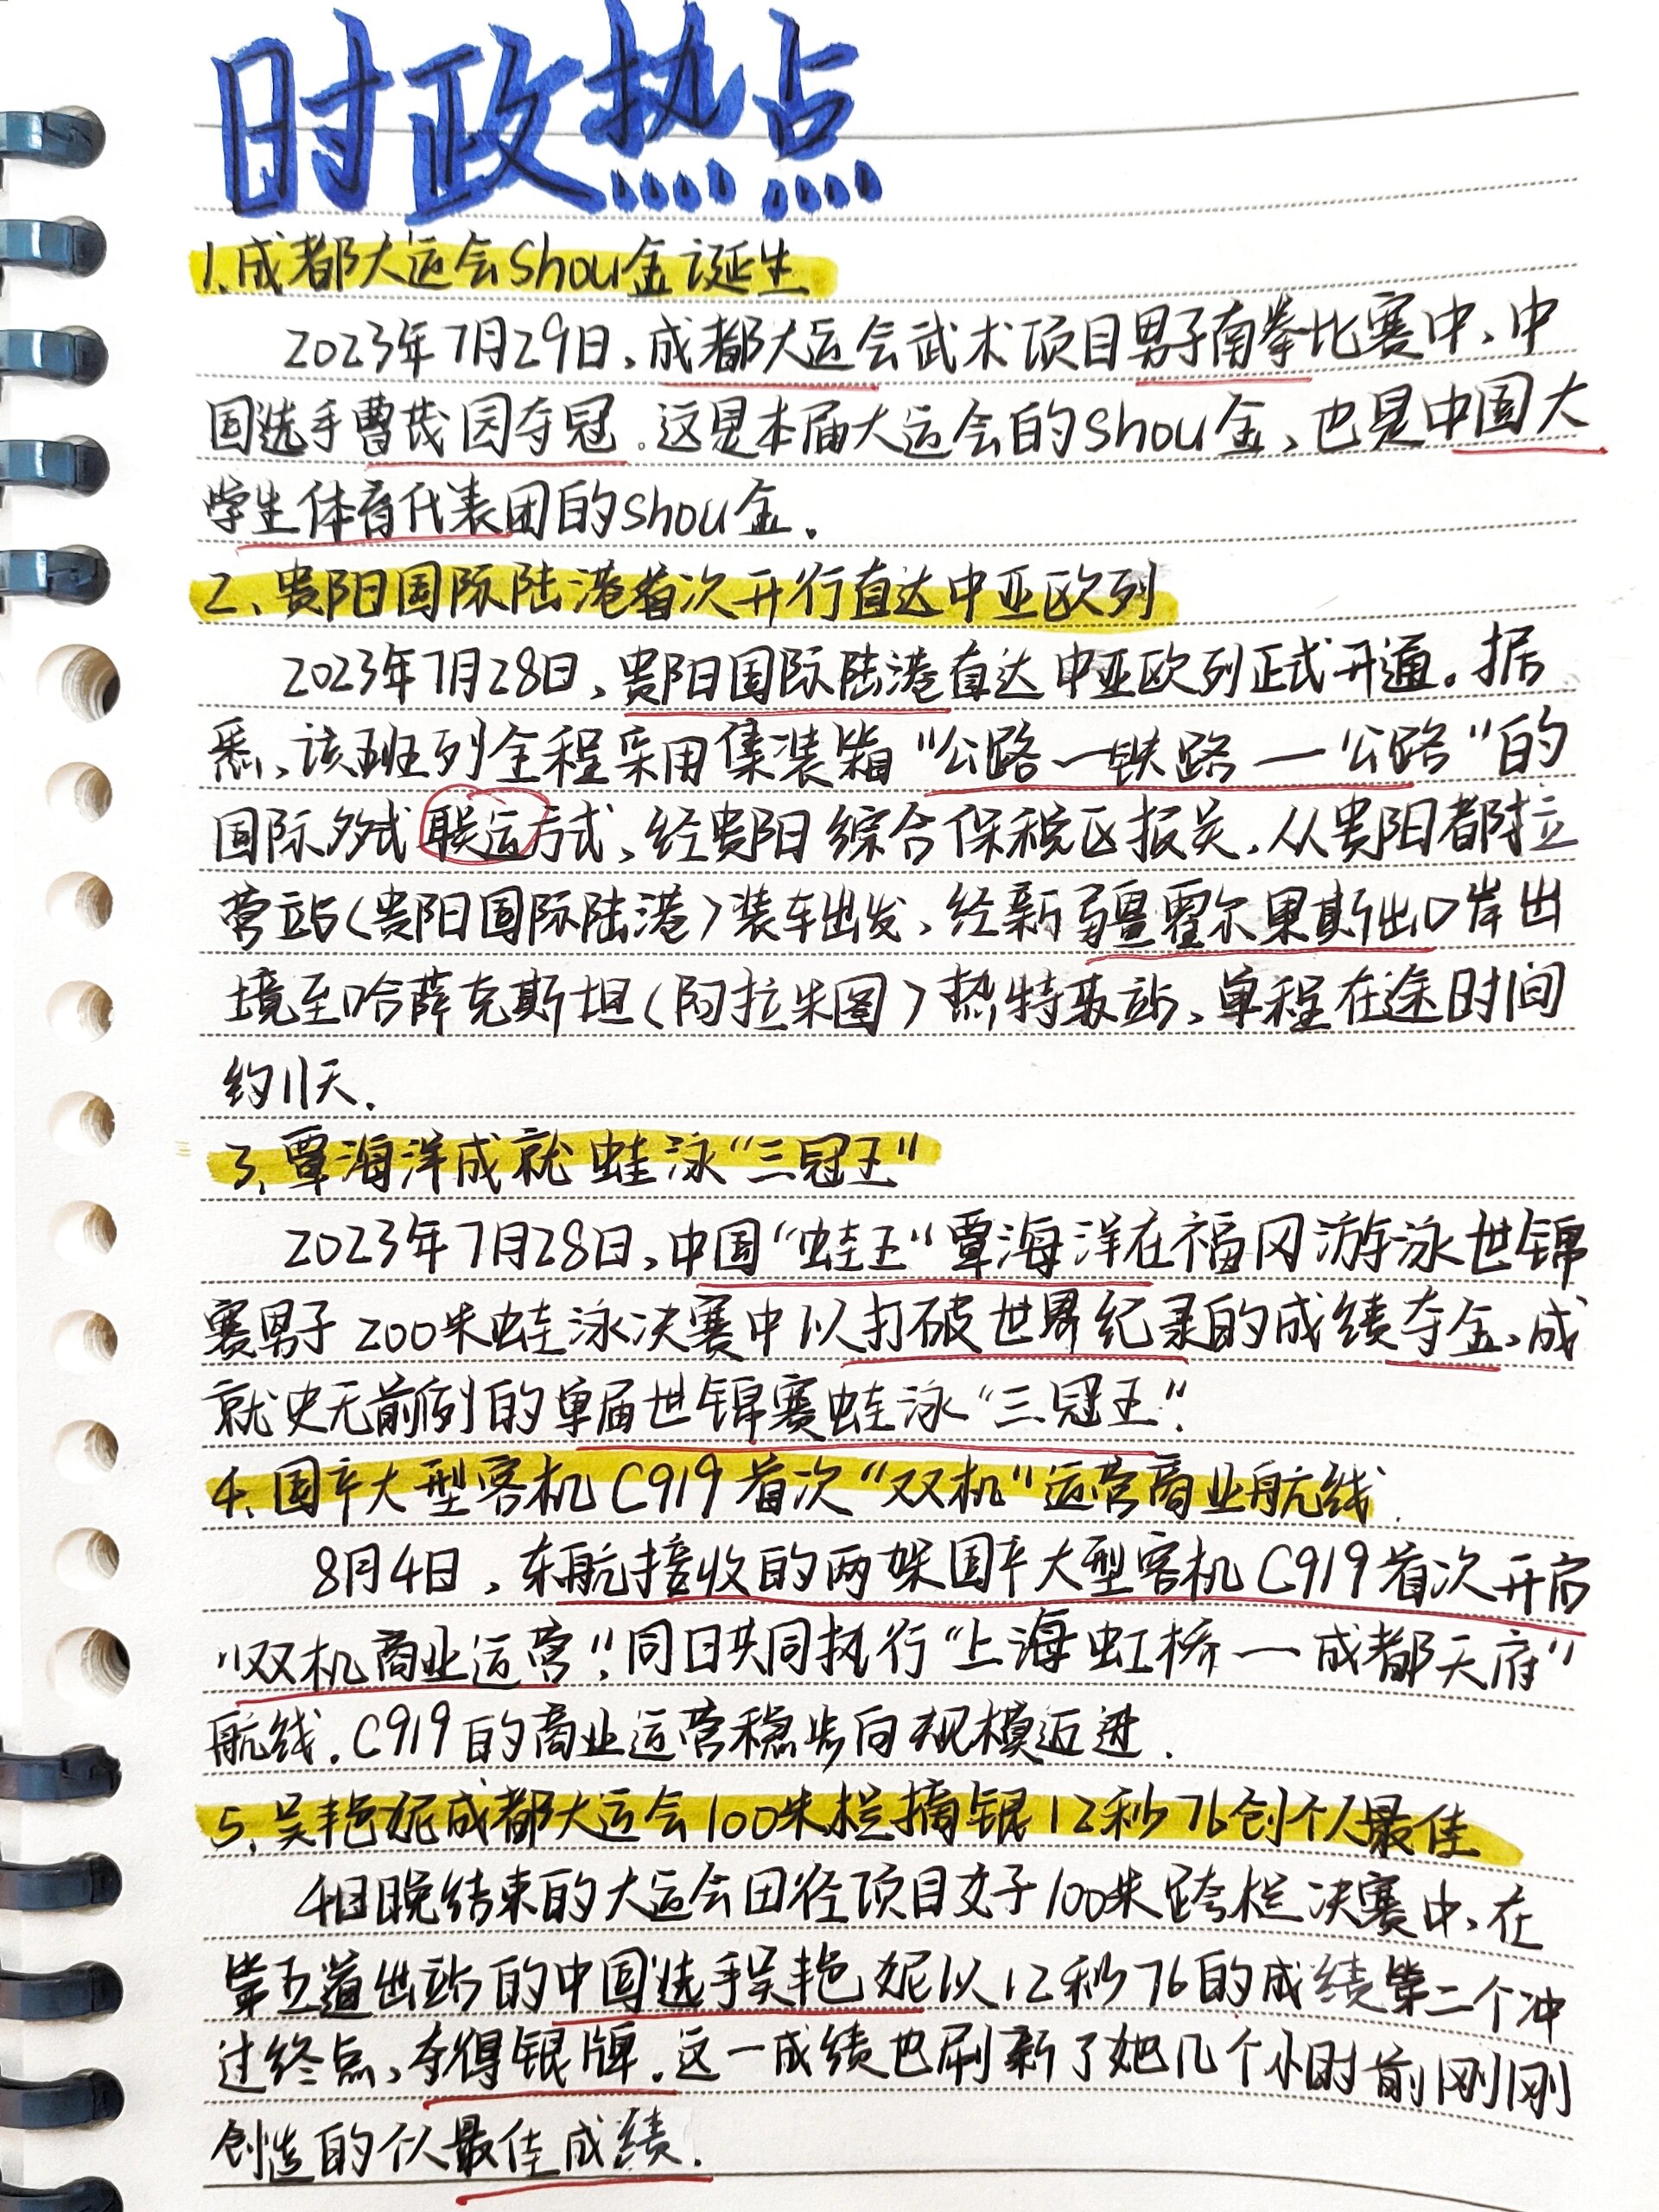 时政热点
1.成都大运会Shou金诞生
2023年7月29日,成都大运会武术项目男子南拳比赛中、中
国选手曹茂园夺冠.这是本届大运会的Shou金、也是中国大
学生体育代表团的Shou金.
2、贵阳国际陆港首次开行直达中亚欧列
2023年7月28日、贵阳国际陆港直达中亚欧列正式开通。据
悉、该班列全程采用集装箱"公路—铁路—公路"的
国际多式联运方式、经贵阳综合保税区报关.从贵阳都拉
营站(贵阳国际陆港)装车出发、经新疆霍尔果斯出口岸出
境至哈萨克斯坦(阿拉木图)热特苏站、单程在途时间
约11天.
3、覃海洋成就蛙泳"三冠王"
2023年7月28日,中国"蛙王"覃海洋在福冈游泳世锦
赛男子200米蛙泳决赛中以打破世界纪录的成绩夺金、成
就史无前例的单届世锦赛蛙泳"三冠王".
4.国产大型客机C919首次"双机"运营商业航线.
8月4日,东航接收的两架国产大型客机C919首次开启
"双机商业运营",同日共同执行"上海虹桥—成都天府"
航线.C919的商业运营稳步向规模迈进.
5.吴艳妮成都大运会100米栏摘银12秒76创个人最佳
4日晚结束的大运会田径项目女子100米跨栏决赛中、在
第五道出站的中国选手吴艳妮以12秒76的成绩第二个冲
过终点、夺得银牌.这一成绩也刷新了她几个小时前刚刚
创造的个人最佳成绩.